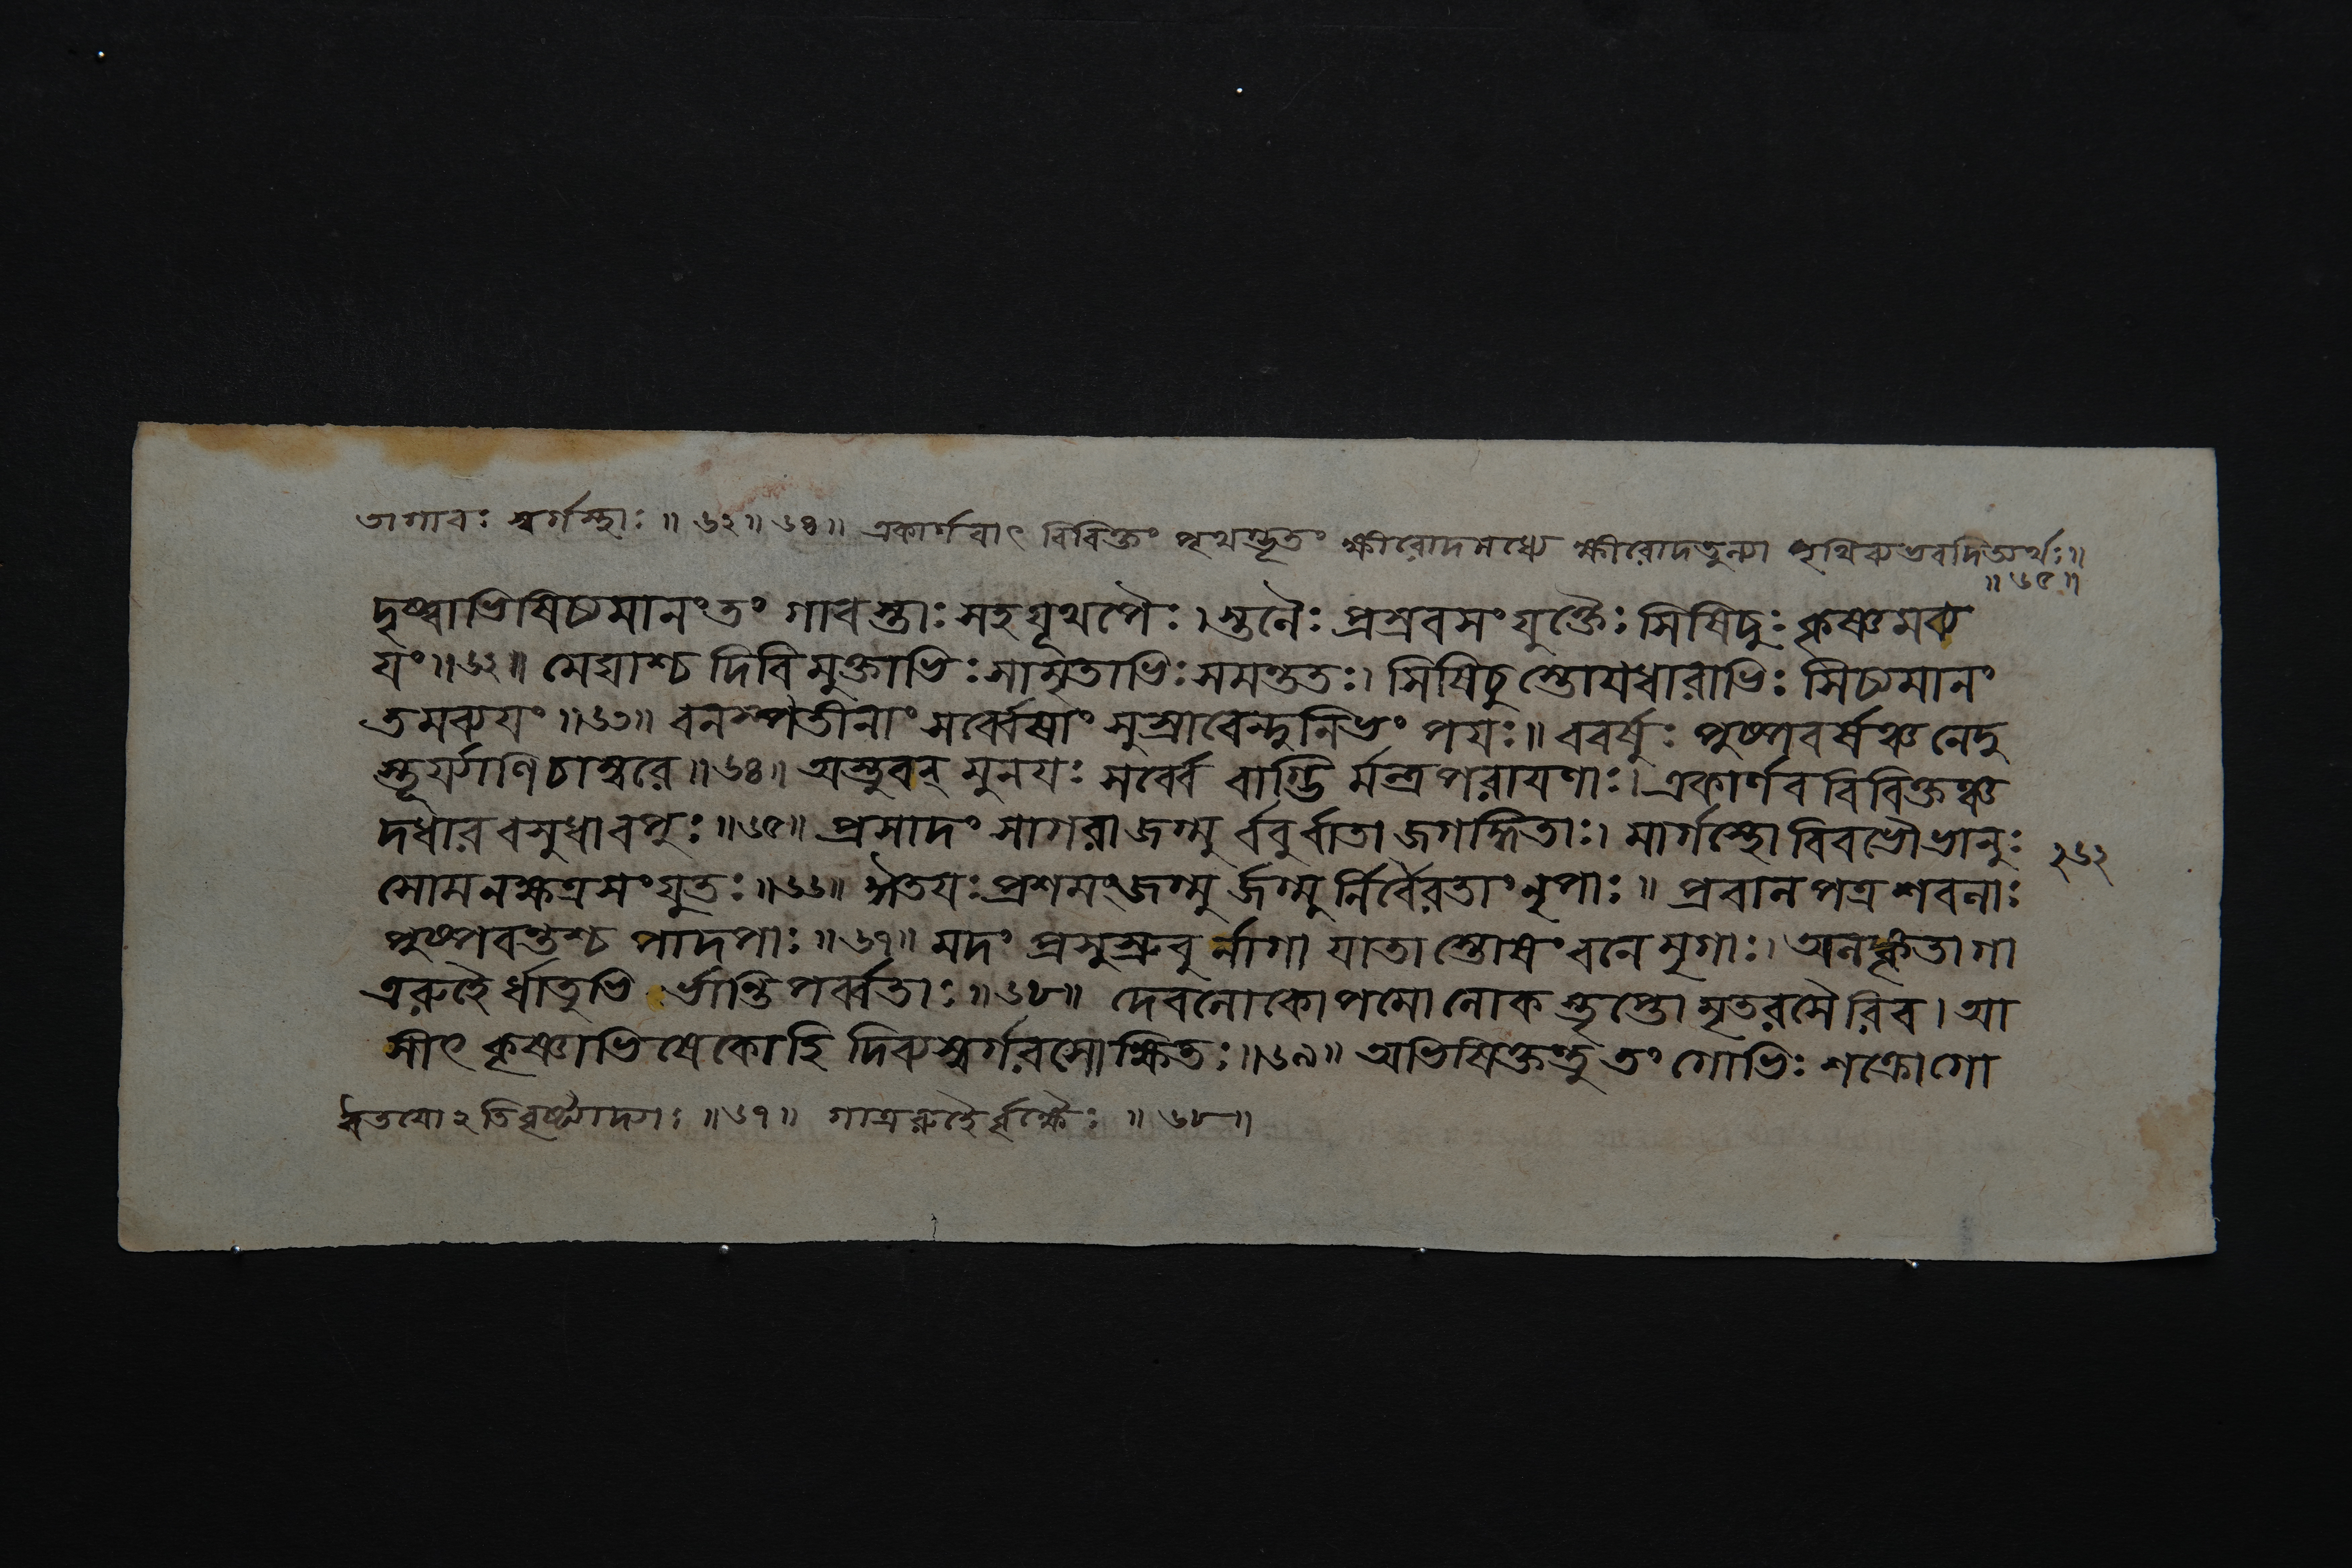 তা গাবঃ স্বর্গস্থাঃ ॥ ৬২ ॥ ৬৪ ॥ একার্ণবাৎ বিবিক্তং পৃথগ্ভূতং ক্ষীরোদমধ্যে ক্ষীরোদতুল্যা পৃথিব্যভবদিত্যর্থঃ ॥
॥ ৬৫ ॥
দৃষ্ট্বাভিষিচ্যমানং তং গাবস্তাঃ সহ যূথপৈঃ । স্তনৈঃ প্রস্রবসংযুক্তৈঃ সিষিচুঃ কৃষ্ণমব্য
যং ॥ ৬২ ॥ মেঘাশ্চ দিবি মুক্তাভিঃ সামৃতাভিঃ সমন্ততঃ । সিষিচুস্তোযধারাভিঃ সিচ্যমানং
তমব্যযং ॥ ৬৩ ॥ বনস্পতীনাং সর্ব্বেষাং সুস্রাবেন্দুনিভং পযঃ ॥ ববর্ষুঃ পুষ্পবর্ষঞ্চ নেদু
স্তূর্যাণি চাম্বরে ॥ ৬৪ ॥ অস্তুবন্ মুনযঃ সর্ব্বে বাগ্ভি র্মন্ত্রপরাযণাঃ । একার্ণববিবিক্তঞ্চ
দধার বসুধা বপুঃ ॥ ৬৫ ॥ প্রসাদং সাগরা জগ্মু র্ববুর্বাতা জগদ্ধিতাঃ । মার্গস্থো বিবভৌ ভানুঃ
২৬২
সোমনক্ষত্রসংযুতঃ ॥ ৬৬ ॥ ঈতযঃ প্রশমং জগ্মু র্জগ্মু র্নির্বৈরতাং নৃপাঃ ॥ প্রবালপত্রশবলাঃ
পুষ্পবন্তশ্চ পাদপাঃ ॥ ৬৭ ॥ মদং প্রসুস্রুবু র্নাগা যাতাস্তোষং বনে মৃগাঃ । অলঙ্কৃতা গা
ত্ররুহৈ র্ধাতুভি র্ভান্তি পর্ব্বতাঃ ॥ ৬৮ ॥ দেবলোকোপমো লোক স্তৃপ্তোমৃতরসৈরিব । আ
সীৎ কৃষ্ণাভিষেকো হি দিব্যস্বর্গরসোক্ষিতঃ ॥ ৬৯ ॥ অভিষিক্তন্তু তং গোভিঃ শক্রো গো
ঈতযোঽতিবৃষ্ট্যাদ্যাঃ ॥ ৬৭ ॥ গাত্ররুহৈর্বৃক্ষৈঃ ॥ ৬৮ ॥